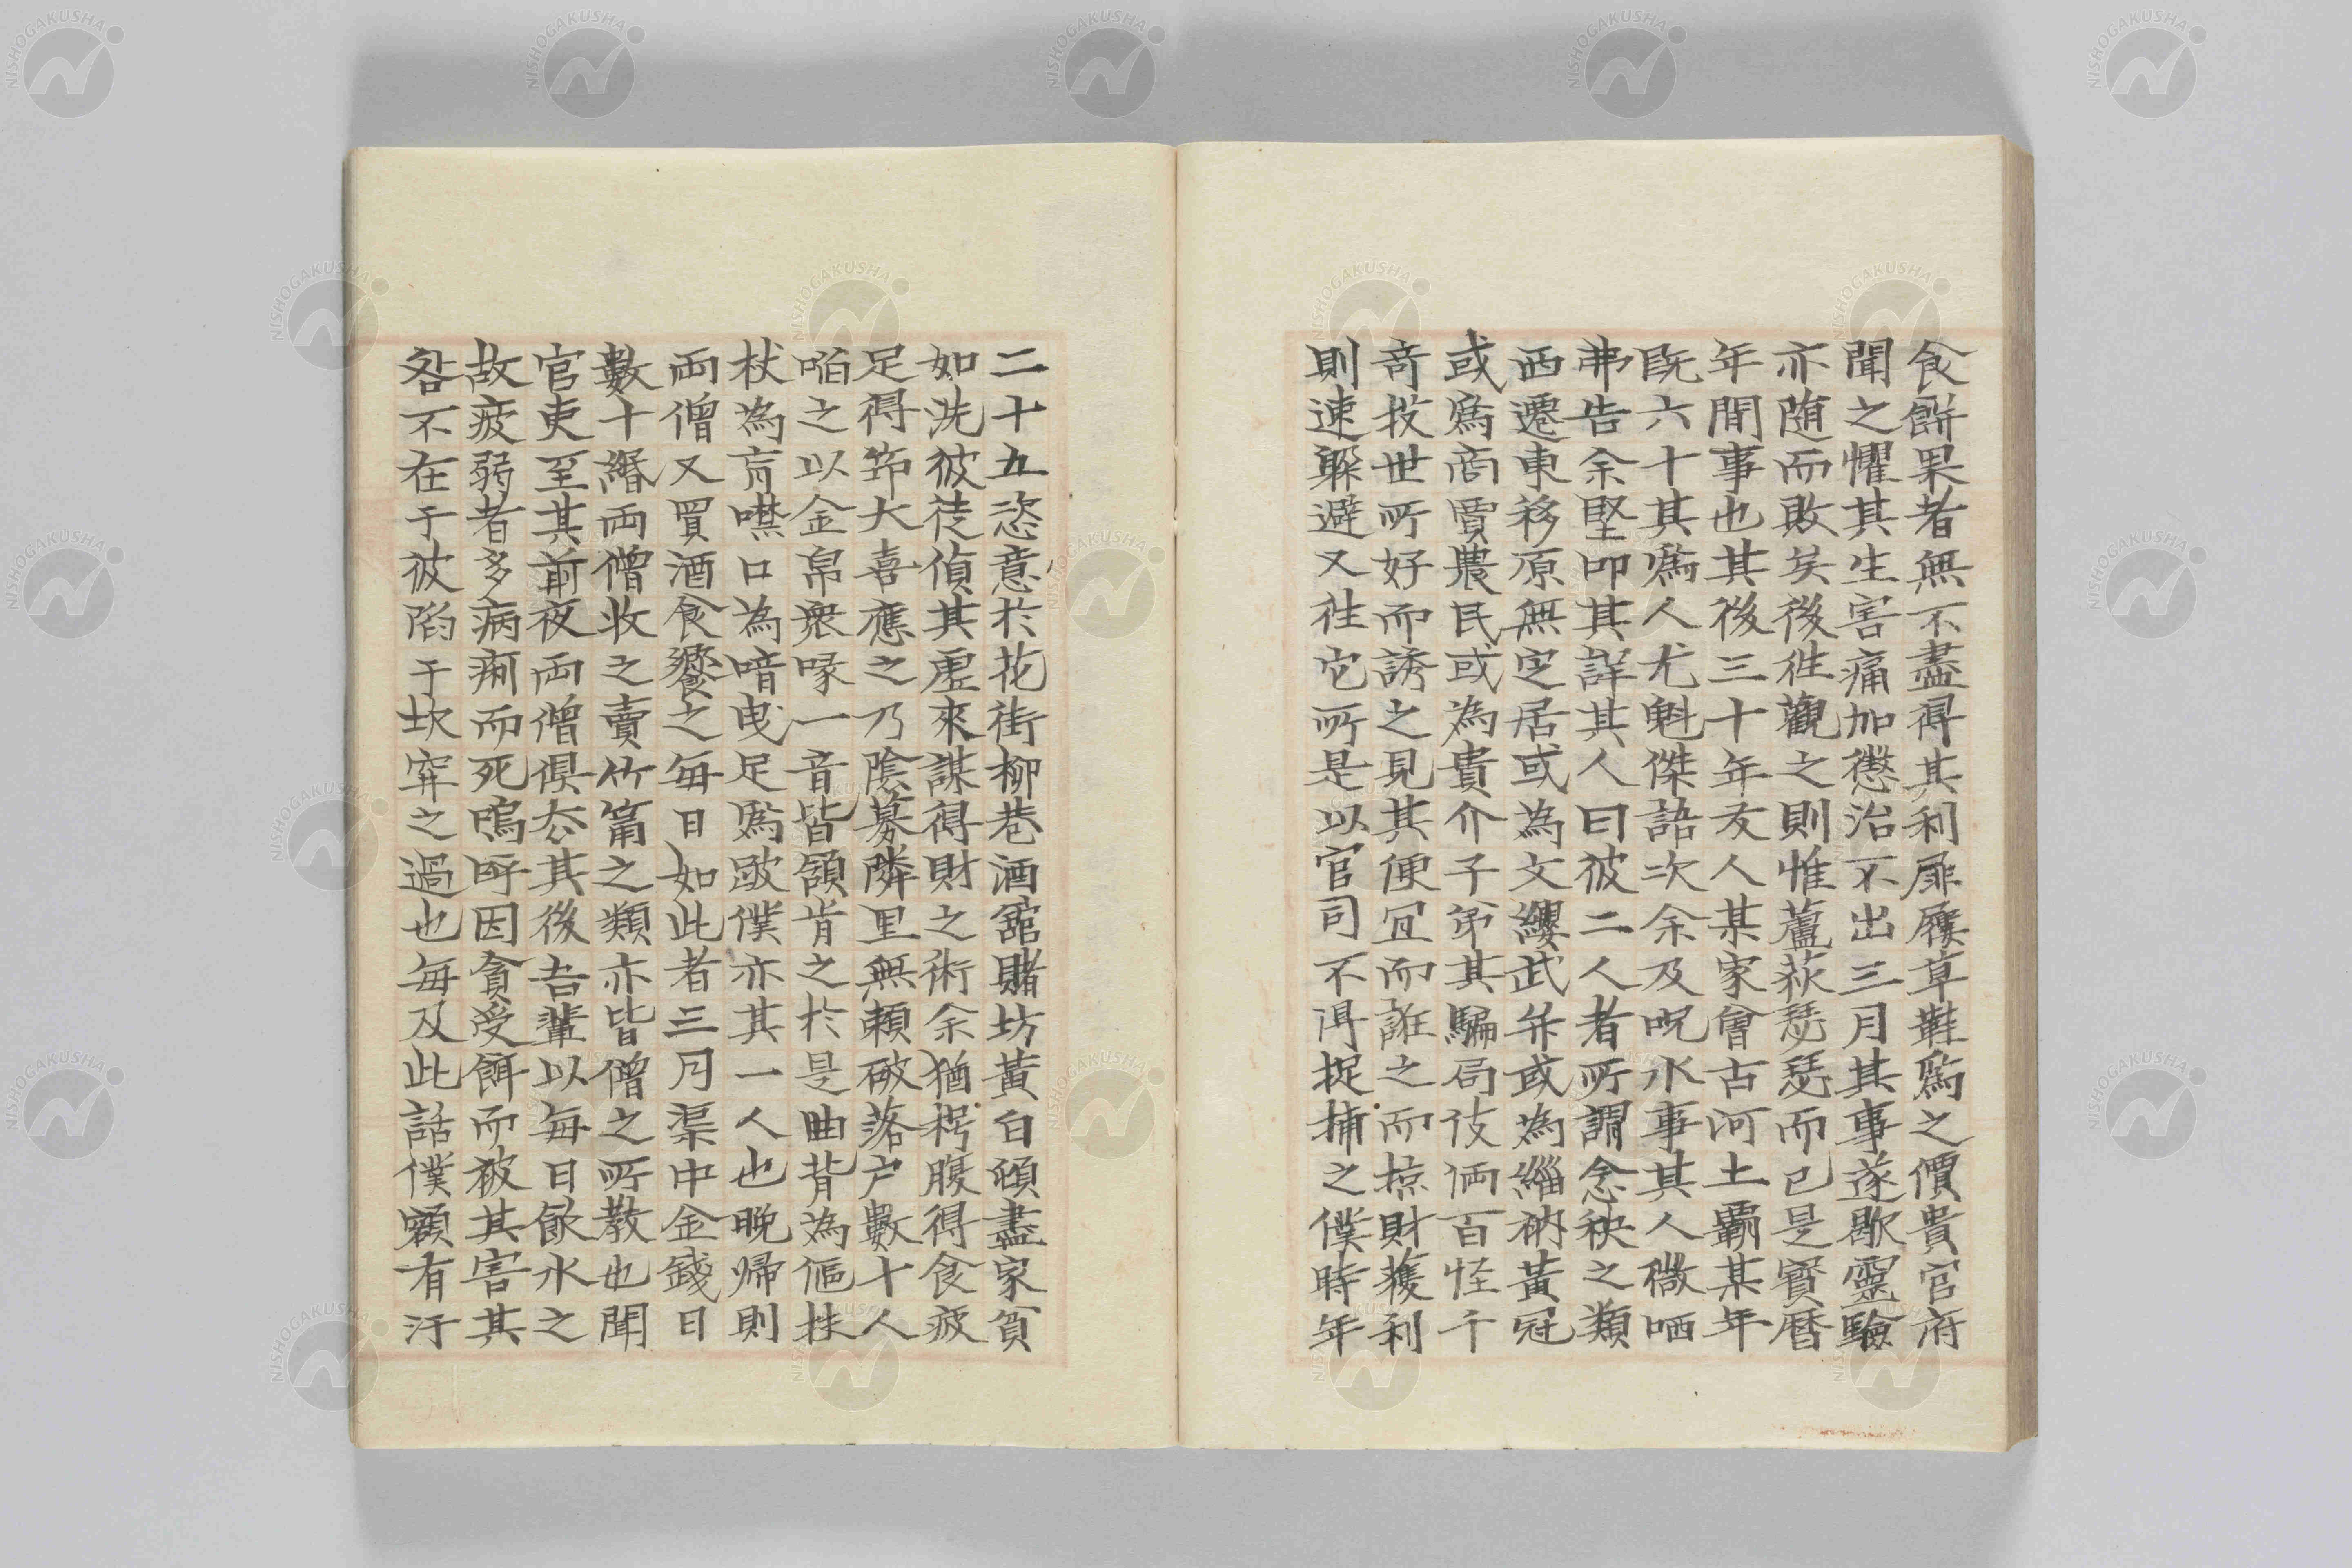 食餠果者無不盡得其利屝屨草鞋爲之價貴官府
聞之懼其生害痛加懲治不出三月其事遂歇靈驗
亦随而敗矣後徃觀之則惟蘆荻瑟瑟而已是寶暦
年間事也其後三十年友人某家會古河土覇某年
既六十其爲人尤魁傑語次余及呪水事其人微哂
弗告余堅叩其詳其人曰彼二人者所謂念秧之類
西遷東移原無定居或為文纓武弁或為緇衲黃冠
或爲商賈農民或為貴介子弟其騙局伎倆百怪千
奇技世所好而誘之見其便冝而誑之而掠財獲利
則速躱避又徃它所是以官司不得捉捕之僕時年
二十五恣意於花街柳巷酒舘賭坊黃白傾盡家貧
如洗彼徒偵其虛來謀得財之術余猶枵腹得食疲
足得筇大喜應之乃陰募隣里無頼破落户數十人
啗之以金帛衆喙一音皆頷肯之於是曲背為傴扶
杖為盲噤口為喑曳足爲跛僕亦其一人也晚歸則
両僧又買酒食饗之每日如此者三月渠中金錢日
數十緡両僧收之賣竹筩之類亦皆僧之所教也聞
官吏至其前夜両僧倶夲其後吾輩以每日飮水之
故疲弱者多病痢而死嗚呼因貪受餌而被其害其
咎不在于彼陷于坎穽之過也每及此話僕額有汗